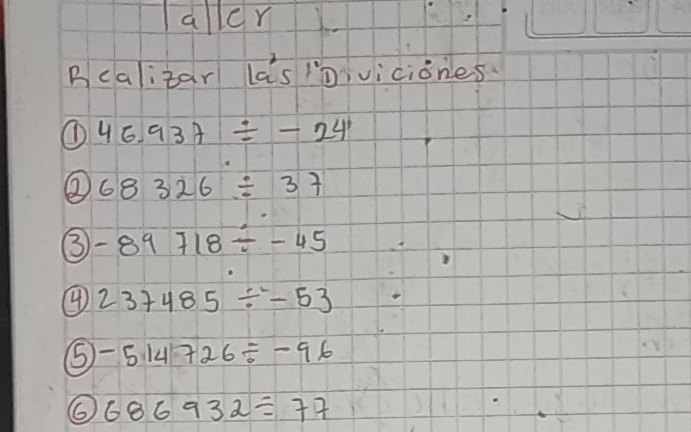 Taller
Realizar las Diviciónes.
① 46.937 ÷ - 24
② 68 326 ÷ 37
③ - 89 718 ÷ - 45
④ 237485 ÷ - 53
⑤ - 514 726 ÷ - 96
⑥ 686 932 ÷ 77